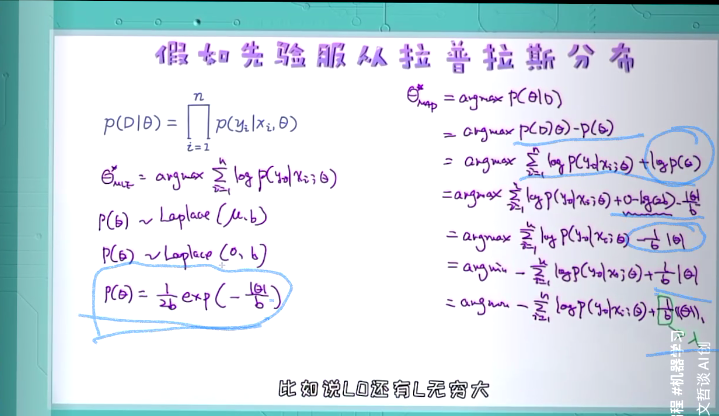 假如先验服从拉普拉斯分布
p(D|θ) = ∏ᵢ₌₁ⁿ p(yᵢ|xᵢ,θ)
θ*MLE = argmax Σᵢ₌₁ⁿ log p(yᵢ|xᵢ;θ)
p(θ) ~ Laplace (μ.b)
p(θ) ~ Laplace (0, b)
p(θ) = 1/2b exp(-|θ|/b)
θ*MAP = argmax p(θ|D)
= argmax p(D|θ)-p(θ)
= argmax Σᵢ₌₁ⁿ log p(yᵢ|xᵢ;θ) + log p(θ)
= argmax Σᵢ₌₁ⁿ log p(yᵢ|xᵢ;θ) + 0-log(2b) - |θ|/b
= argmax Σᵢ₌₁ⁿ log p(yᵢ|xᵢ;θ) - 1/b |θ|
= argmin - Σᵢ₌₁ⁿ log p(yᵢ|xᵢ;θ) + 1/b |θ|
= argmin - Σᵢ₌₁ⁿ log p(yᵢ|xᵢ;θ) + 1/b ||θ||₁
λ
比如说L0还有L无穷大
程 #机器学习
文哲谈AI创